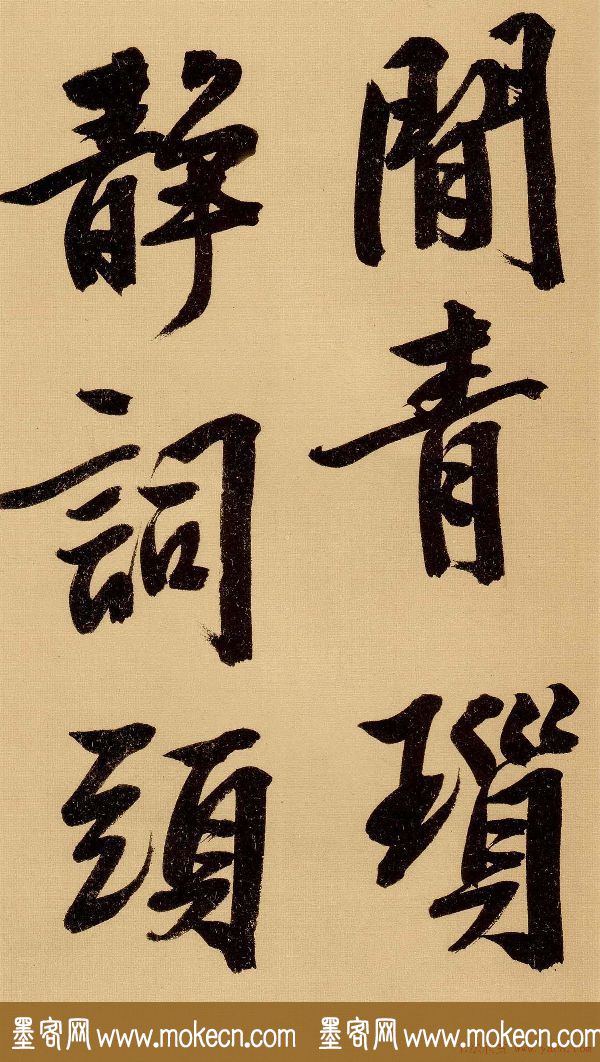 閒青瑣
靜詞頭
墨客网 www.mokecn.com 墨客网 www.mokecn.com